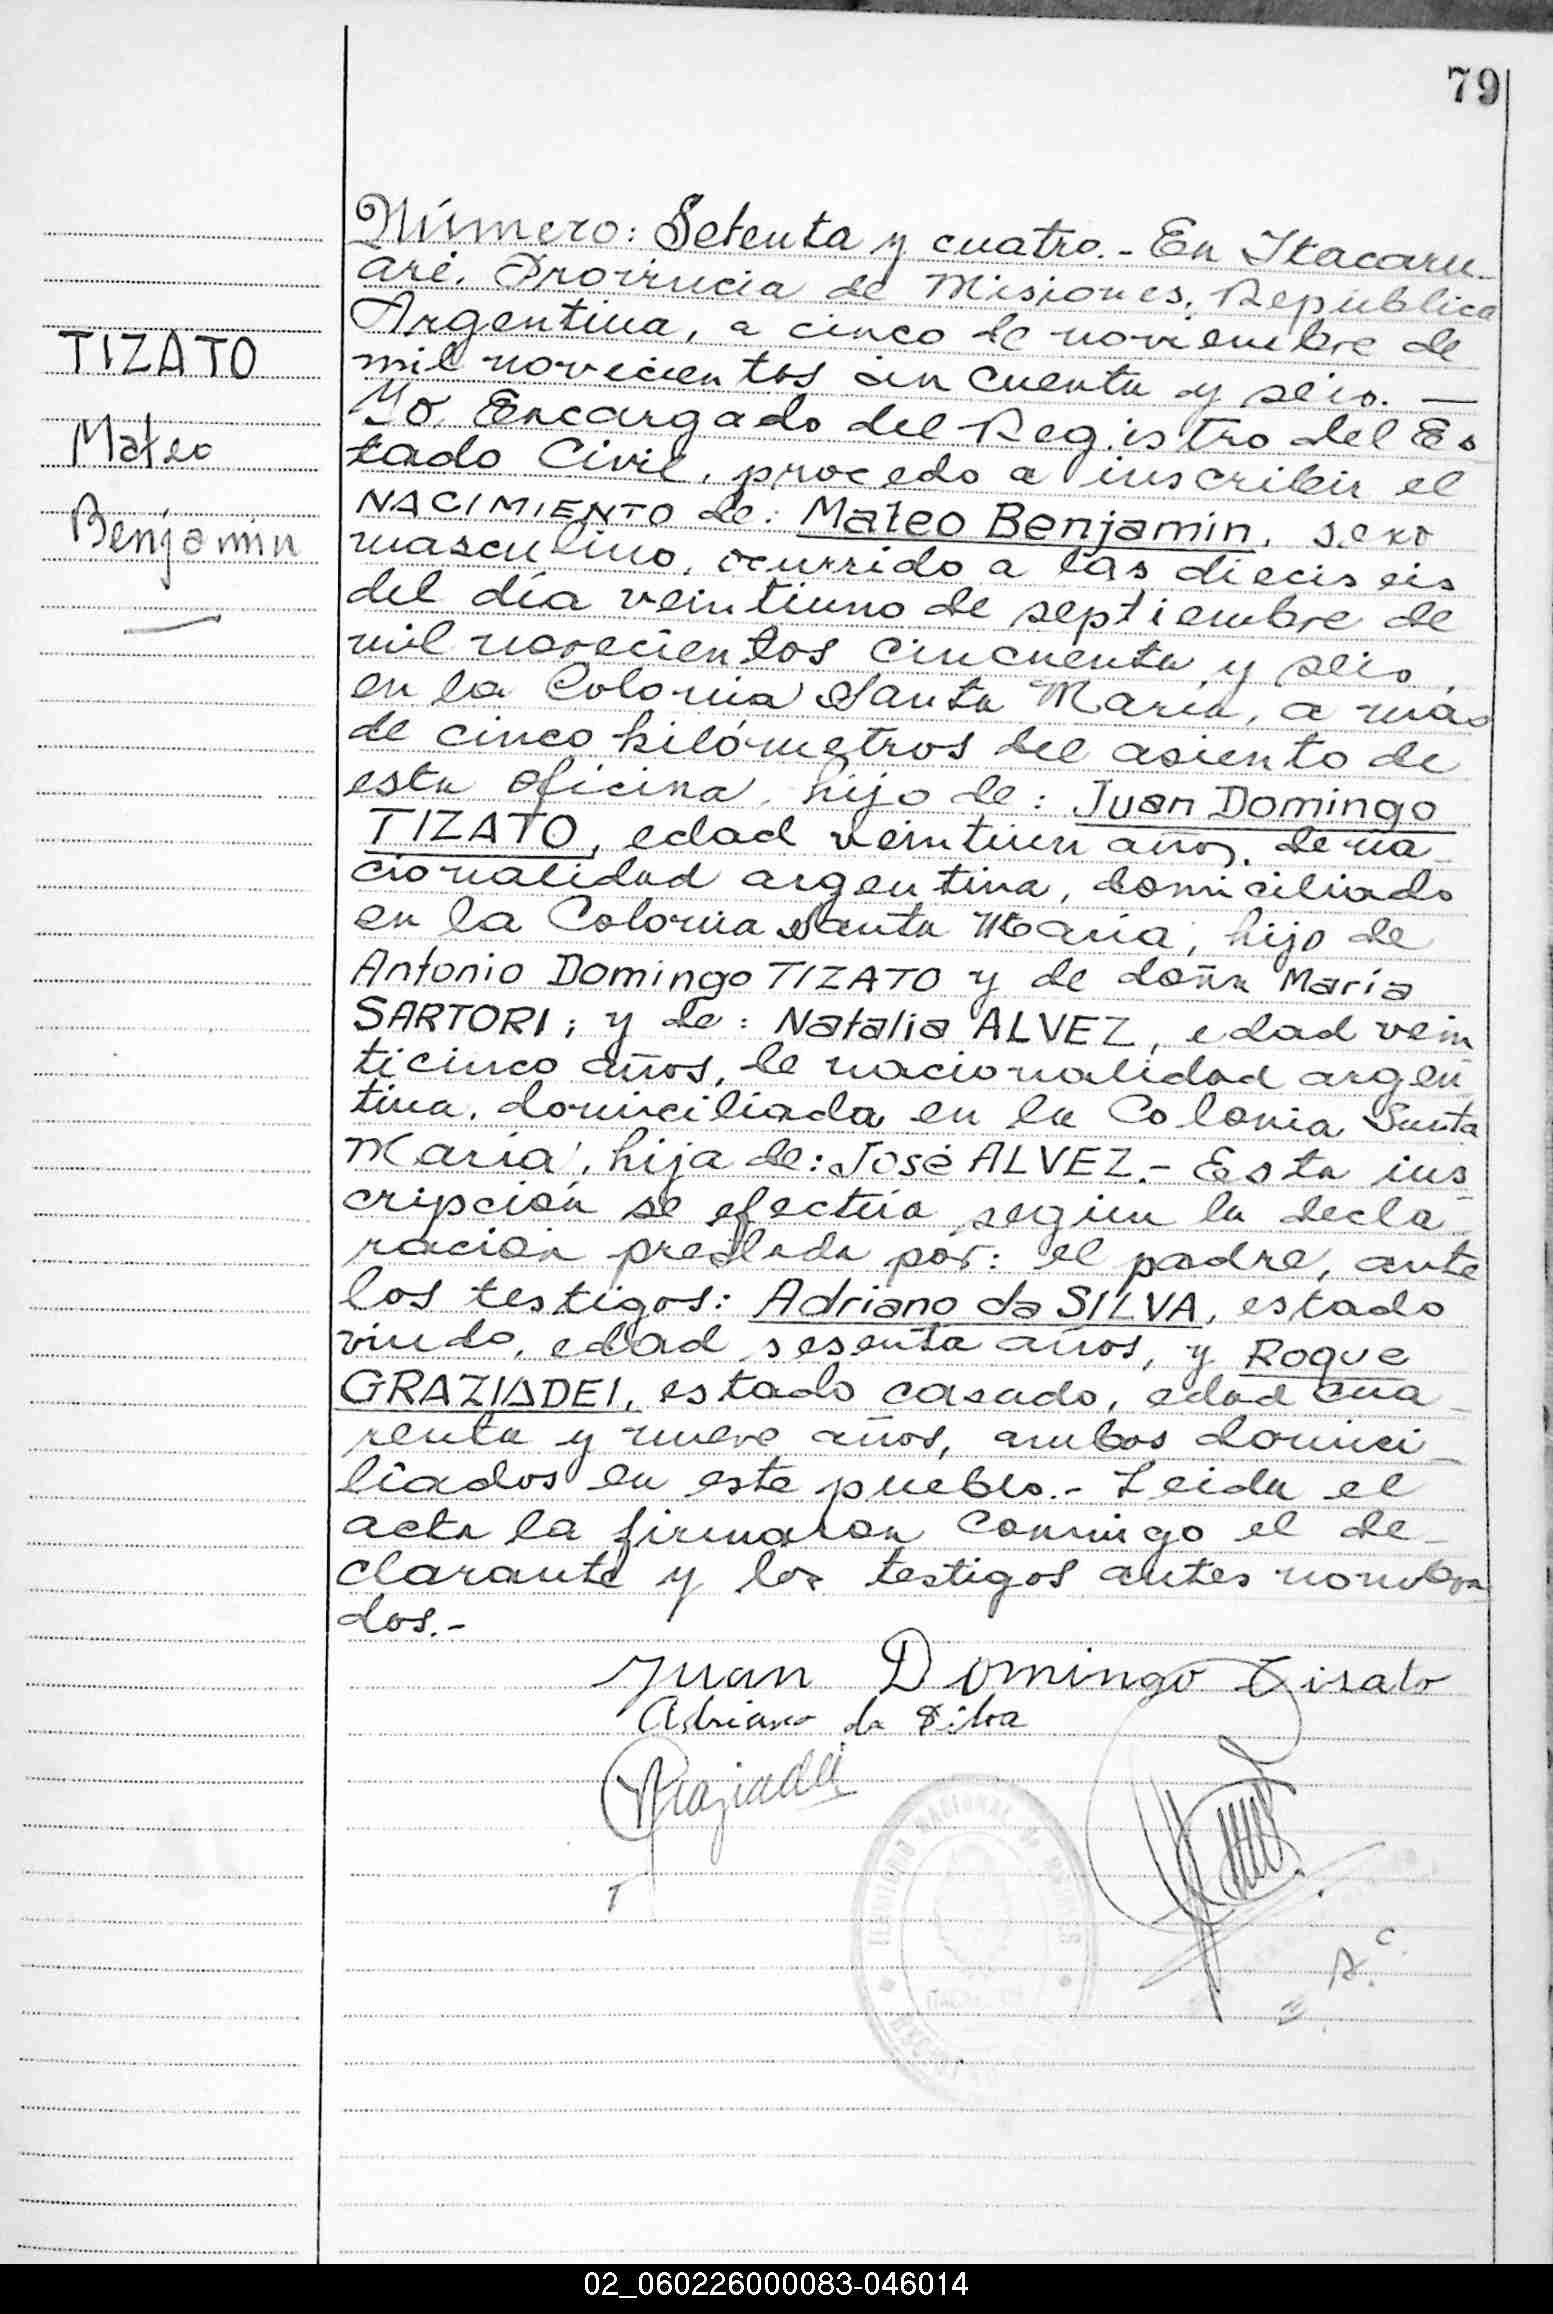 79
TIZATO
Mateo
Benjamin
Número: Setenta y cuatro.- En Itacaru-
aré, Provincia de Misiones, República
Argentina, a cinco de noviembre de
mil novecientos cincuenta y seis. —
Yo, Encargado del Registro del Es
tado Civil, procedo a inscribir el
NACIMIENTO de: Mateo Benjamin, sexo
masculino, ocurrido a las dieciseis
del día veintiuno de septiembre de
mil novecientos cincuenta y seis,
en la Colonia Santa María, a más
de cinco kilómetros del asiento de
esta oficina, hijo de: Juan Domingo
TIZATO, edad veintiun años, de na-
cionalidad argentina, domiciliado
en la Colonia Santa María, hijo de
Antonio Domingo TIZATO y de doña María
SARTORI; y de: Natalia ALVEZ, edad vein
ticinco años, de nacionalidad argen
tina, domiciliada en la Colonia Santa
María, hija de: José ALVEZ.- Esta ins
cripción se efectúa según la decla-
ración prestada por: el padre, ante
los testigos: Adriano da SILVA, estado
viudo, edad sesenta años, y Roque
GRAZIADEI, estado casado, edad cua-
renta y nueve años, ambos domici-
liados en este pueblo.- Leida el
acta la firmaron conmigo el de-
clarante y los testigos antes nombra
dos.-
Juan Domingo Tisato
Adriano da Silva
Graziadei
TERRITORIO NACIONAL DE MISIONES
02_060226000083-046014